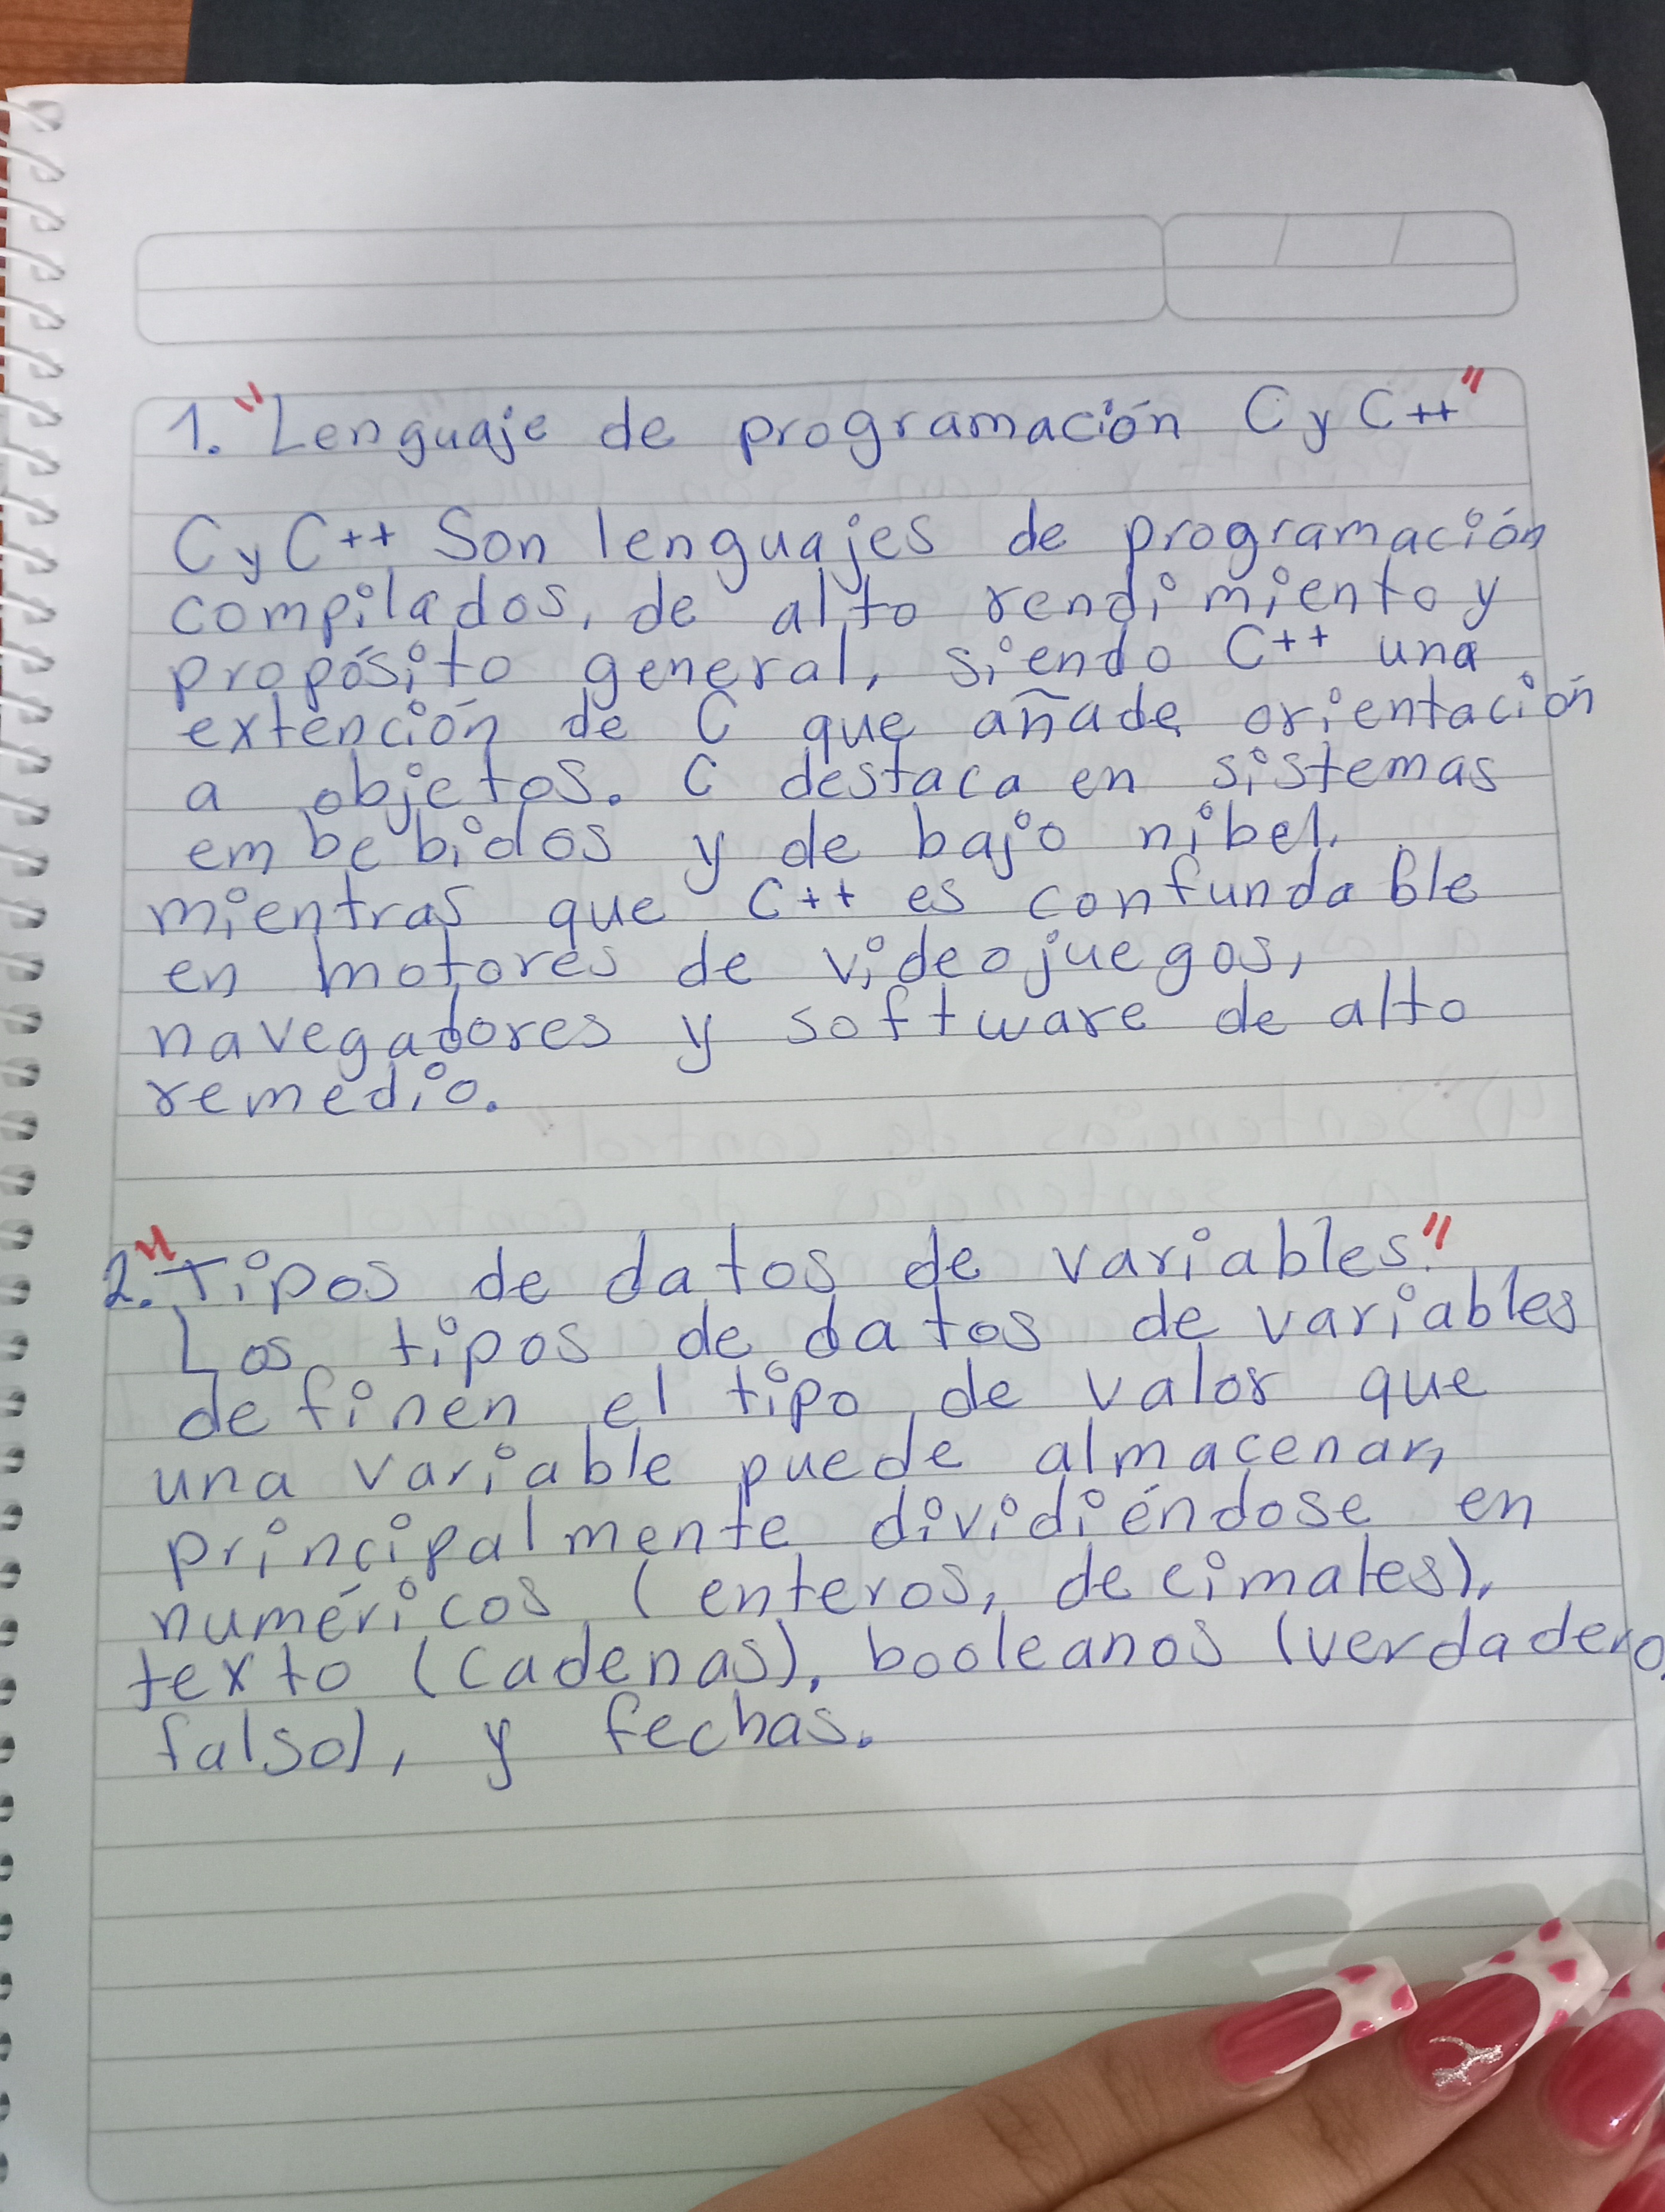 1. "Lenguaje de programación C y C++"
C y C++ Son lenguajes de programación
compilados, de alto rendimiento y
propósito general, siendo C++ una
extención de C que añade orientación
a objetos. C destaca en sistemas
embebidos y de bajo nibel,
mientras que C++ es confundable
en motores de videojuegos,
navegadores y software de alto
remedio.
2. "Tipos de datos de variables."
Los tipos de datos de variables
definen el tipo de valor que
una variable puede almacenar,
principalmente dividiéndose en
numéricos (enteros, decimales),
texto (cadenas), booleanos (verdadero,
falso), y fechas.